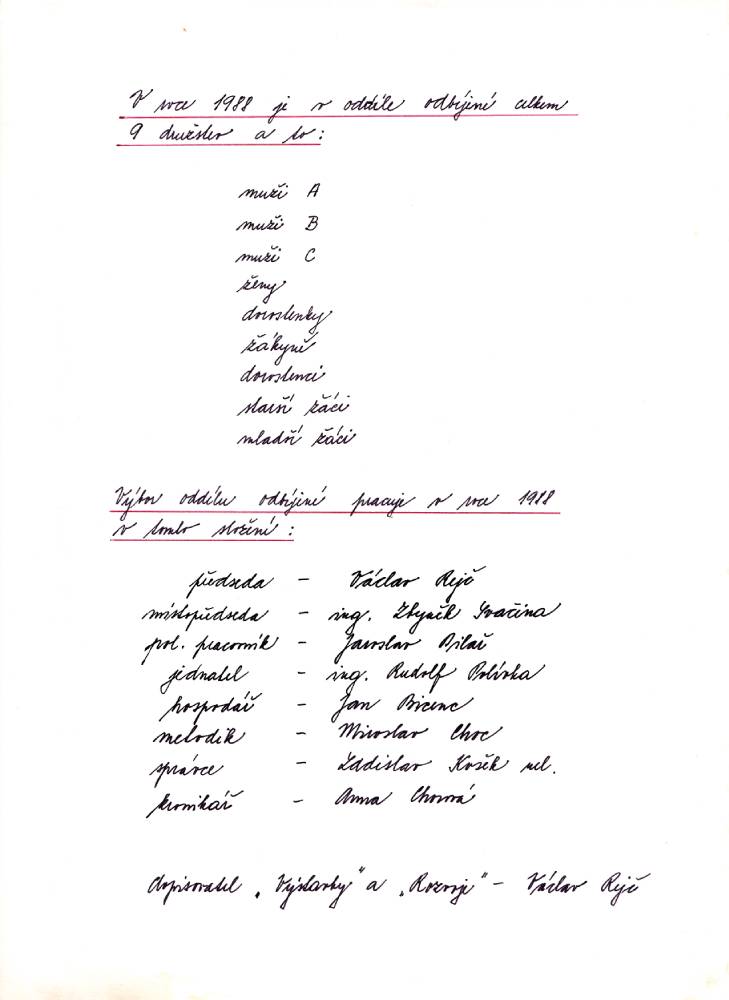 V roce 1988 je v oddíle odbíjené celkem
9 družstev a to:
muži A
muži B
muži C
ženy
dorostenky
žákyně
dorostenci
starší žáci
mladší žáci
Výbor oddílu odbíjené pracuje v roce 1988
v tomto složení:
předseda - Václav Rejč
místopředseda - ing. Zbyněk Svačina
pol. pracovník - Jaroslav Bílač
jednatel - ing. Rudolf Polívka
hospodář - Jan Bicenc
metodik - Miroslav Choc
správce - Ladislav Kosěk ml.
kronikář - Anna Chocová
dopisovatel „Výstavby" a „Rozvoje" - Václav Rejč